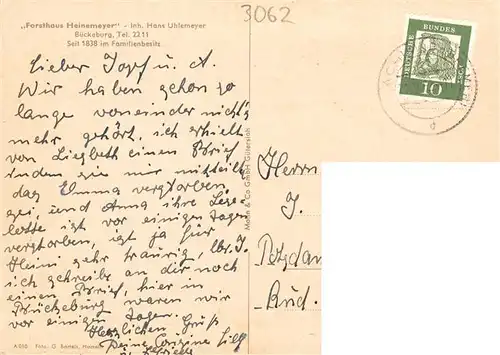 „Forsthaus Heinemeyer" - Inh. Hans Uhlemeyer
Bückeburg, Tel. 2211
Seit 1838 im Familienbesitz
3062
DEUTSCHE BUNDES POST
10
Lieber Josef u. A.
Wir haben schon so
lange voneinder nichts
mehr gehört, ich erhielt
von Liesbeth einen Brief
indem sie mir mitteilt
das Emma verstorben
sei, und Anna ihre
ist vor einigen Tagen
verstorben, ist ja für
Heini sehr traurig, lbr. J.
ich schreibe an dir noch
einen Brief, hier in
Bückeburg waren wir
vor einigen Tagen.
Herzlichen Gruß
Deine Cousine
Herrn
J.
Potsdam
Rud.
Mohn & Co GmbH Gütersloh